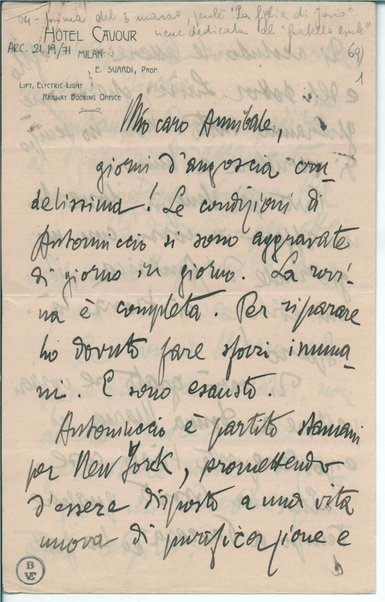 prima del 3 marzo, perchè "La figlia di Jorio"
viene dedicata al "fratello
HÔTEL CAVOUR
ARC. 21.19/71 MILAN
69)
1
E. SUARDI, PROP.
LIFT. ELECTRIC LIGHT
RAILWAY BOOKING OFFICE
Mio caro Annibale,
giorni d'angoscia cru
delissima! Le condizioni di
Antonuccio si sono aggravate
di giorno in giorno. La rovi
na è completa. Per riparare
ho dovuto fare sforzi inuma
ni. E sono esausto.
Antonuccio è partito stamani
per New York, promettendo
d'essere disposto a una vita
nuova di purificazione e
B
VE